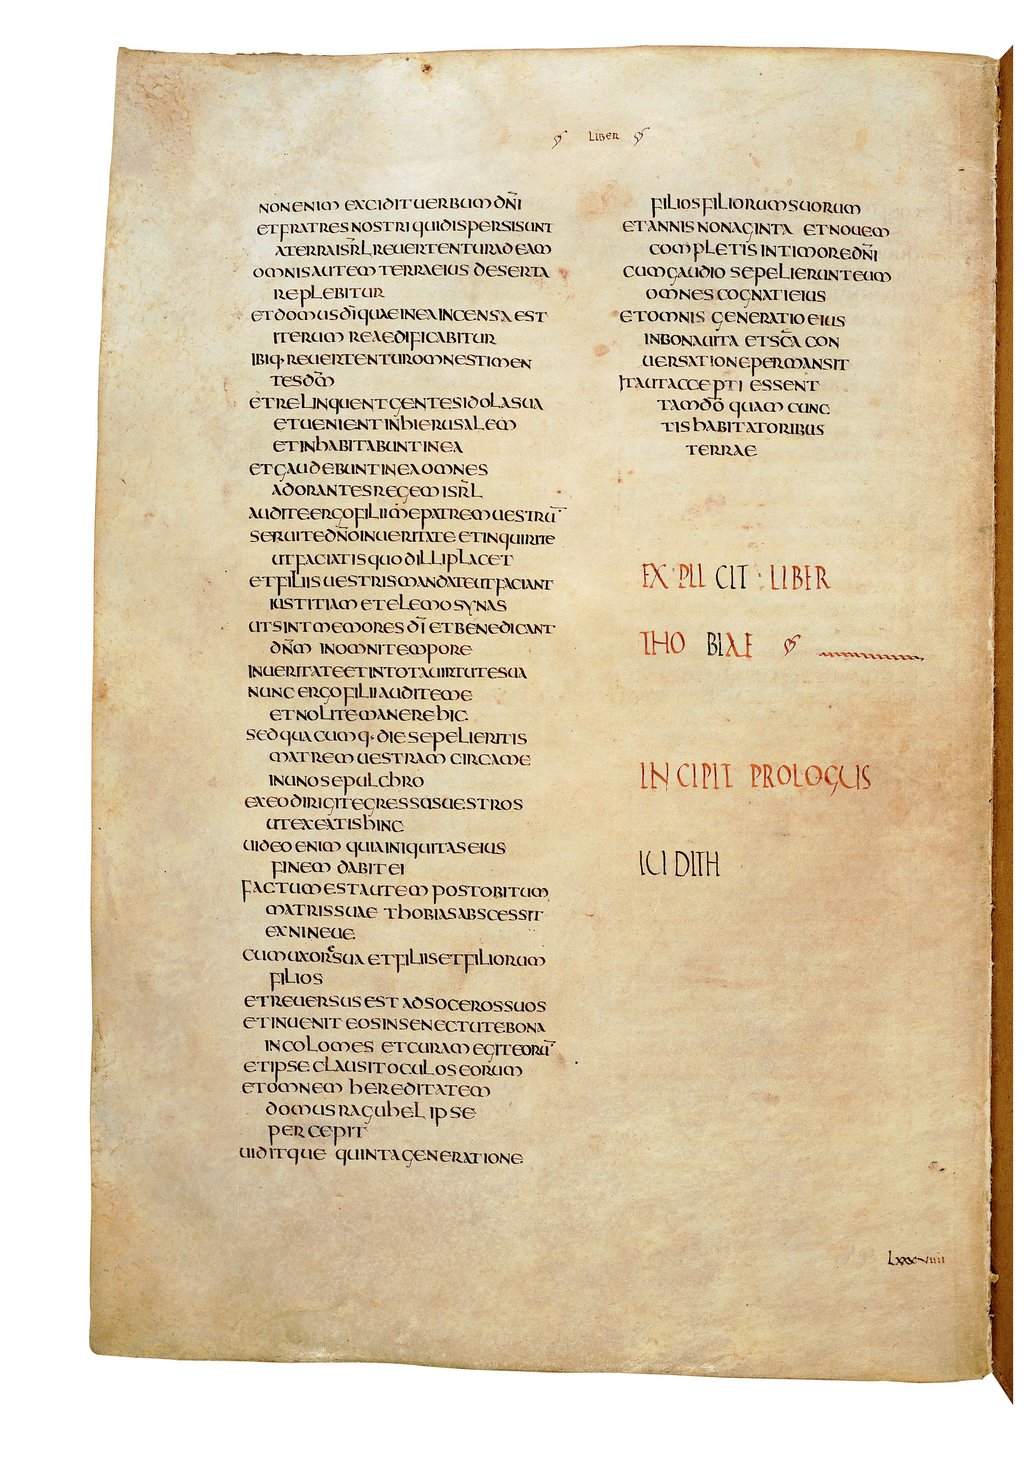 Liber
NON ENIM EXCIDIT UERBUM DN̄I
ET FRATRES NOSTRI QUI DISPERSI SUNT
A TERRA ISRL̄ REUERTENTUR AD EAM
OMNIS AUTEM TERRA EIUS DESERTA
REPLEBITUR
ET DOMUS DĪ QUAE IN EA INCENSA EST
ITERUM REAEDIFICABITUR
IBIQ· REUERTENTUR OMNES TIMEN
TES DM̄
ET RELINQUENT GENTES IDOLA SUA
ET UENIENT IN HIERUSALEM
ET INHABITABUNT IN EA
ET GAUDEBUNT IN EA OMNES
ADORANTES REGEM ISRL̄
AUDITE ERGO FILII ME PATREM UESTRŪ
SERUITE DN̄O IN UERITATE ET INQUIRITE
UT FACIATIS QUOD ILLI PLACET
ET FILIIS UESTRIS MANDATE UT FACIANT
IUSTITIAM ET ELEMOSYNAS
UT SINT MEMORES DĪ ET BENEDICANT
DN̄M IN OMNI TEMPORE
IN UERITATE ET IN TOTA UIRTUTE SUA
NUNC ERGO FILII AUDITE ME
ET NOLITE MANERE HIC
SED QUACUMQ· DIE SEPELIERITIS
MATREM UESTRAM CIRCA ME
IN UNO SEPULCHRO
EX EO DIRIGITE GRESSUS UESTROS
UT EXEATIS HINC
UIDEO ENIM QUIA INIQUITAS EIUS
FINEM DABIT EI
FACTUM EST AUTEM POST OBITUM
MATRIS SUAE THOBIAS ABSCESSIT
EX NINEUE
CUM UXORE SUA ET FILIIS ET FILIORUM
FILIOS
ET REUERSUS EST AD SOCEROS SUOS
ET INUENIT EOS IN SENECTUTE BONA
INCOLOMES ET CURAM EGIT EORŪ
ET IPSE CLAUSIT OCULOS EORUM
ET OMNEM HEREDITATEM
DOMUS RAGUHEL IPSE
PERCEPIT
UIDITQUE QUINTA GENERATIONE
FILIOS FILIORUM SUORUM
ET ANNIS NONAGINTA ET NOUEM
COMPLETIS IN TIMORE DN̄I
CUM GAUDIO SEPELIERUNT EUM
OMNES COGNATI EIUS
ET OMNIS GENERATIO EIUS
IN BONA UITA ET SC̄A CON
UERSATIONE PERMANSIT
ITA UT ACCEPTI ESSENT
TAM DŌ QUAM CUNC
TIS HABITATORIBUS
TERRAE
EXPLICIT · LIBER
THOBIAE
INCIPIT PROLOGUS
IUDITH
LXXXVIIII